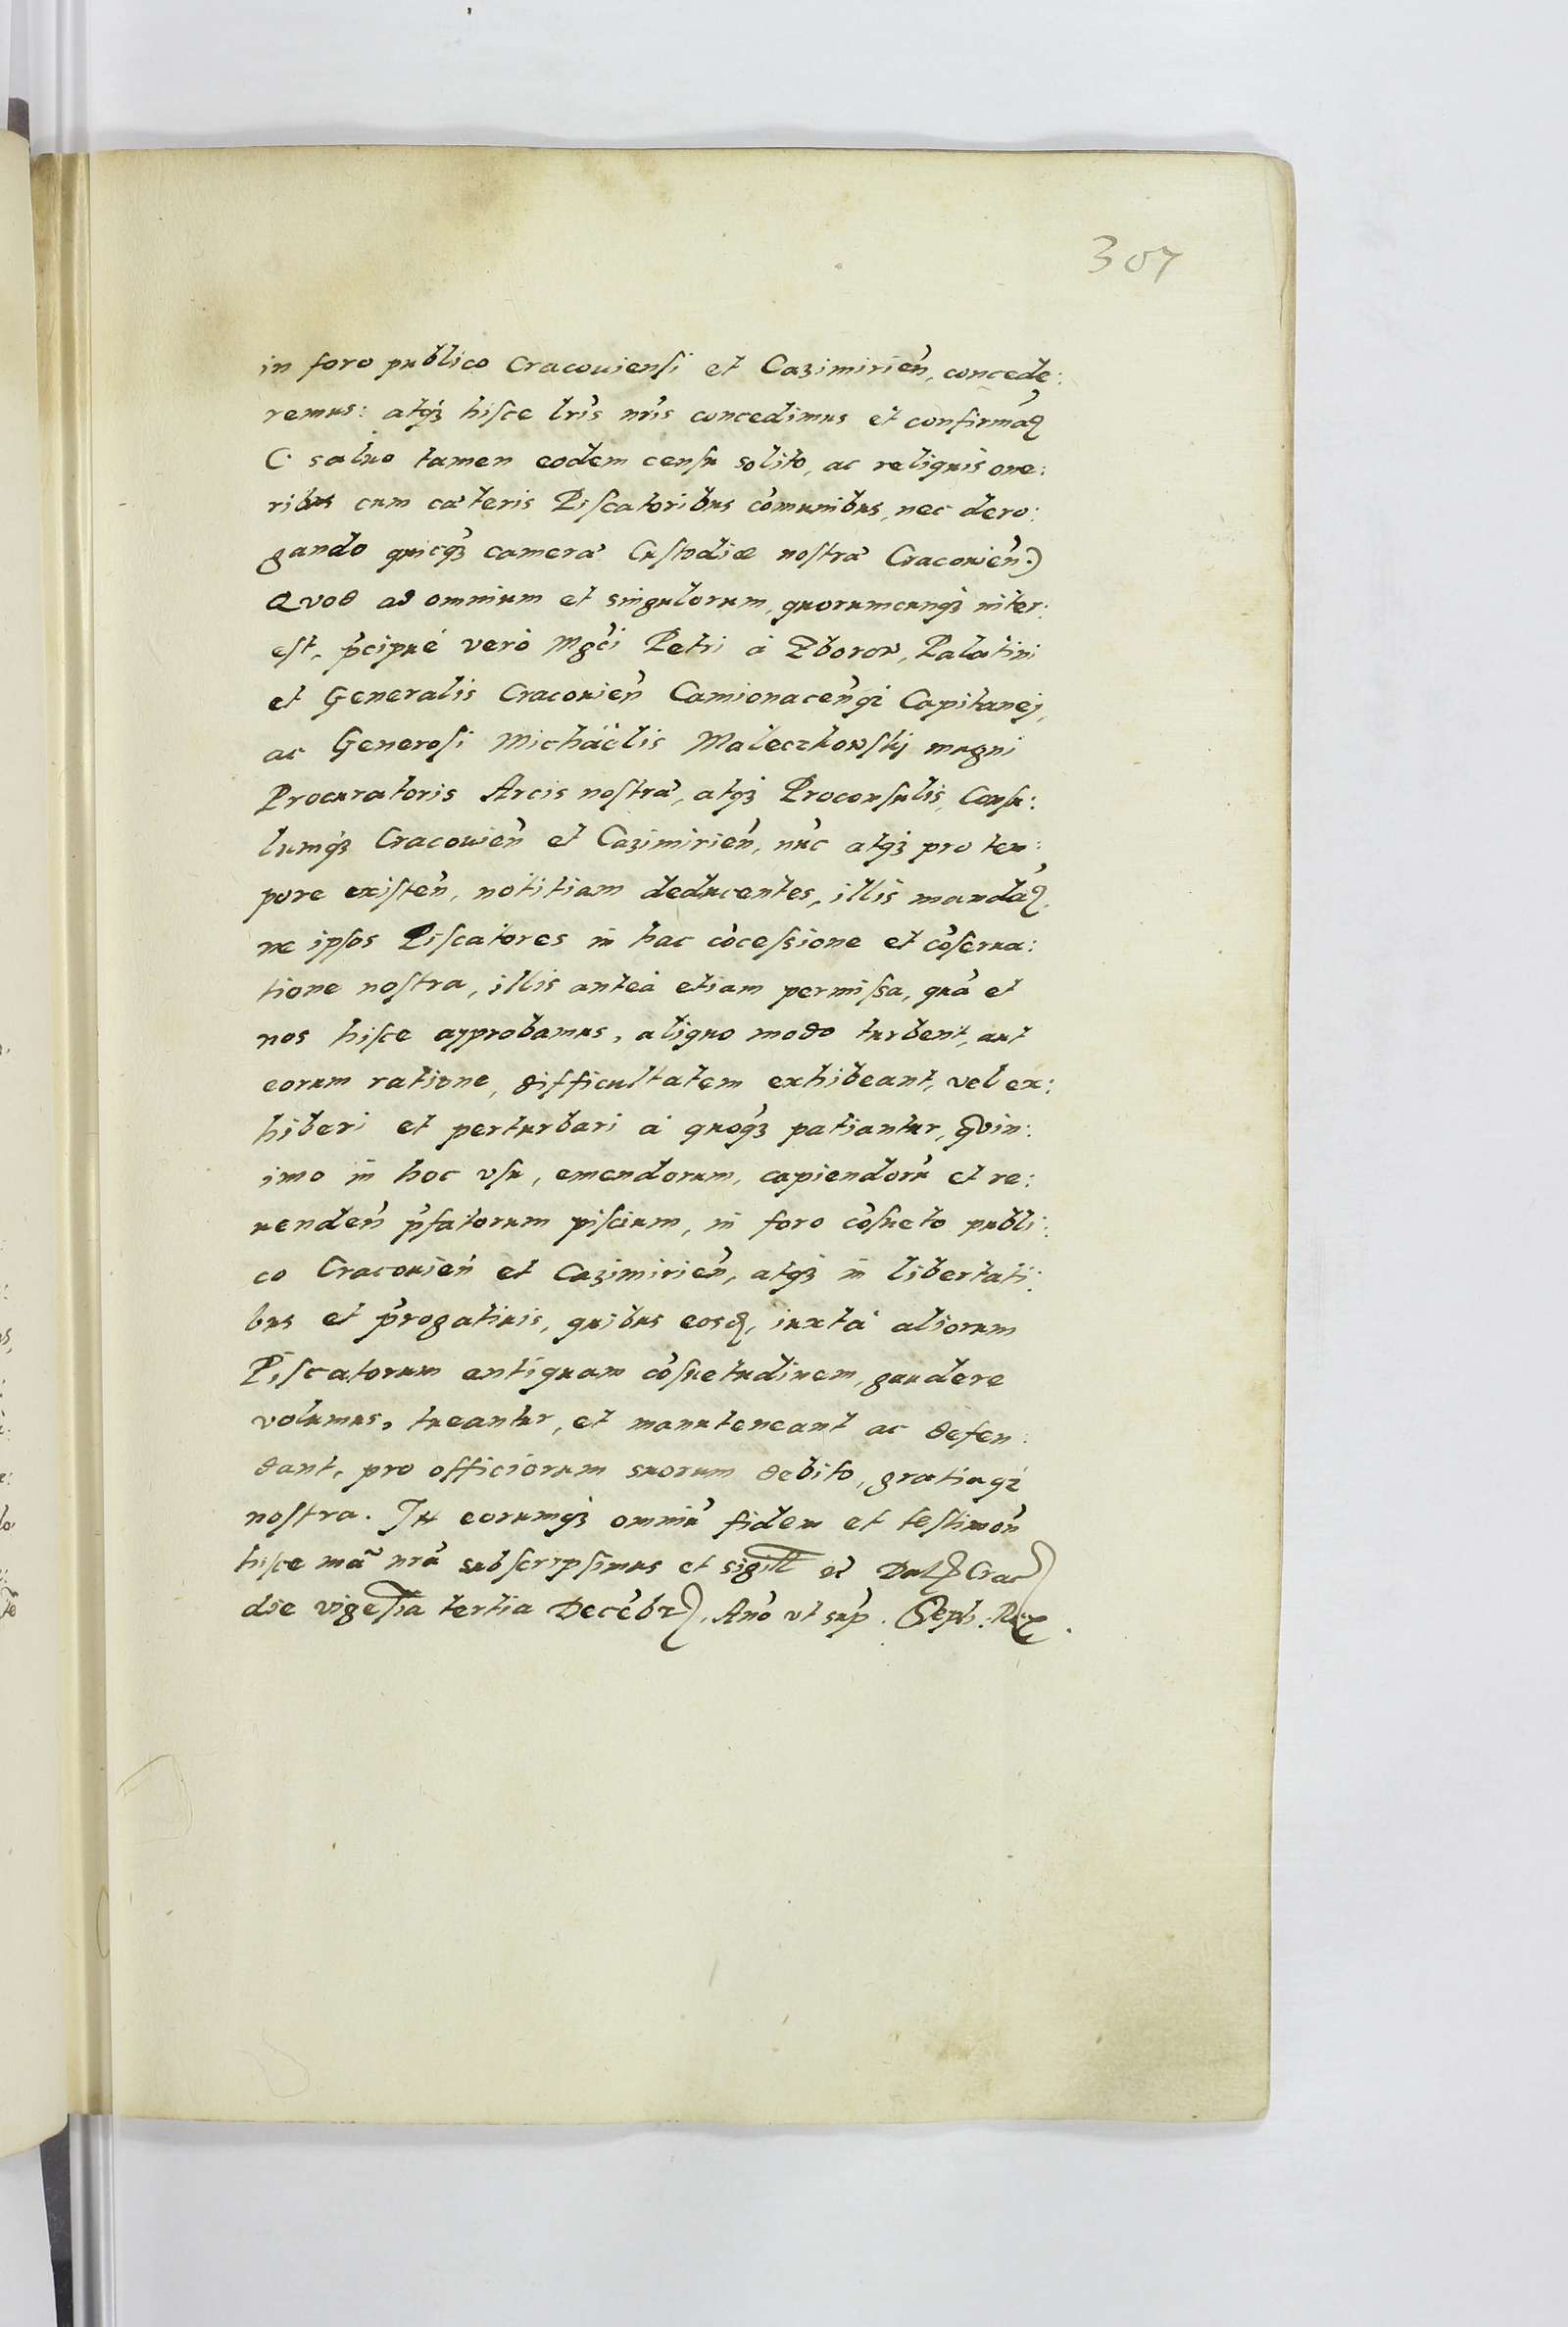 307
in foro publico Cracouiensi et Cazimirień, concede:
remus: atq₃ hisce lrīs nrīs concedimus et confirmaꝫ
(· saluo tamen eodem censu solito, ac reliquis one:
ribus cum cæteris Piscatoribus cōmunibus, nec dero:
gando quicq₃ cameræ Custodiæ nostræ Cracouień·)
Quod ad omnium et singulorum, quorumcunq₃ inter:
est, p̄cipuè verò Mgc̄i Petri à Zborow, Palatini
et Generalis Cracouień Camionaceńq₃ Capitanej,
ac Generosi Michaëlis Maleczkowskj magni
Procuratoris Arcis nostræ, atq₃ Proconsulis, Consu:
lumq₃ Cracouień et Cazimirień, nūc atq₃ pro tem:
pore existeń, notitiam deducentes, illis mandaꝫ
ne ipsos Piscatores in hac cōcessione et cōserua:
tione nostra, illis anteà etiam permissa, quā et
nos hisce approbamus, aliquo modo turbent, aut
eorum ratione, difficultatem exhibeant, vel ex:
hiberi et perturbari à quoq₃ patiantur, quin:
imo in hoc vsu, emendorum, capiendorū et re:
uendeń p̄fatorum piscium, in foro cōsueto publi:
co Cracouień et Cazimirień, atq₃ in libertati:
bus et p̄rogatiuis, quibus eosꝫ, iuxtà aliorum
Piscatorum antiquam cōsuetudinem, gaudere
volumus, tueantur, et manuteneant ac defen:
dant, pro officiorum suorum debito, gratiaq₃
nostra. In eorumq₃ omniū fidem et testimoń
hisce mā nrā subscripsimus et sigill Crac
die vigesīa tertia Decēbr, Anō vt sup. Steph. Rex.